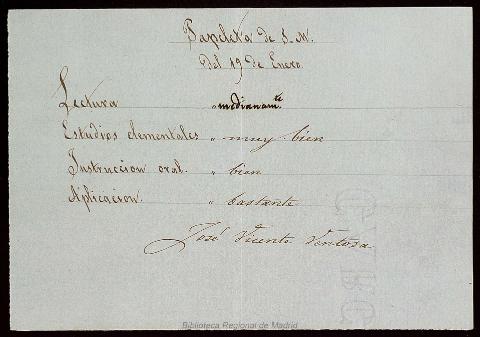 Papeleta de S. M.
Del 19 de Enero
Lectura " medianam.te
Estudios elementales " muy bien
Instruccion oral. " bien
Aplicacion. " bastante
José Vicente Ventosa
Biblioteca Regional de Madrid